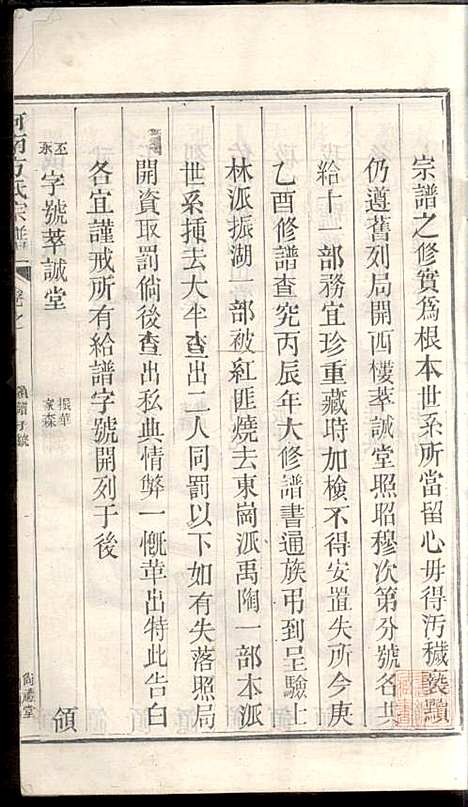 宗譜之修實爲根本世系所當留心毋得汚穢褻黷
仍遵舊列局開西樓萃誠堂照昭穆次第分號名共
給十一部務宜珍重藏時加檢不得安置失所今庚
乙酉修譜查究丙辰年大修譜書通族弔到呈驗上
林派振湖一部被紅匪燒去東崗派禹陶一部本派
世系揷去大半查出二人同罰以下如有失落照局
開資取罰倘後查出私典情弊一慨革出特此告白
各宜謹戒所有給譜字號開列于後
丕永字號萃誠堂
振華
家森
領
河南方氏宗譜
卷之
領譜字號
尚德堂